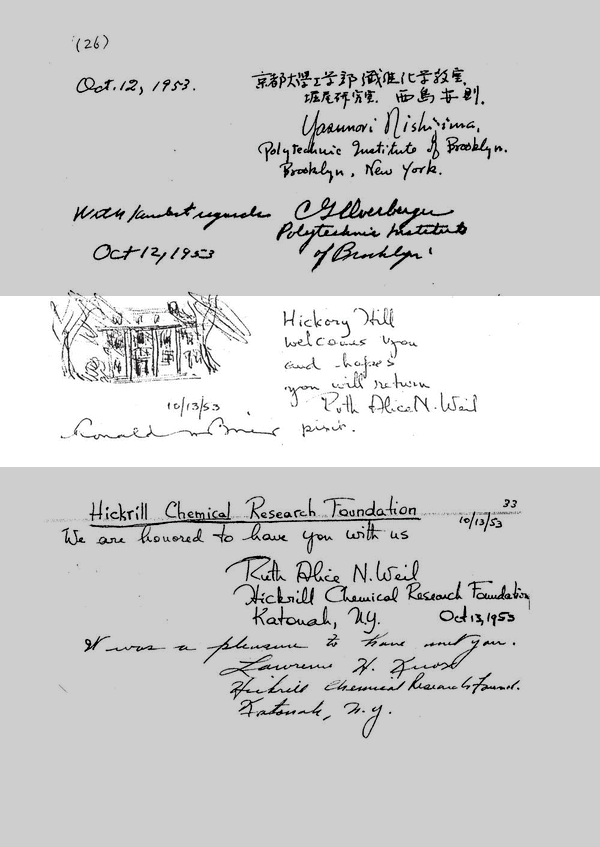 (26)
Oct. 12, 1953.
京都大學工学部 繊維化学教室.
堀尾研究室. 西島安則.
Yasunori Nishijima,
Polytechnic Institute of Brooklyn.
Brooklyn, New York.
With kindest regards C G Overberger
Polytechnic Institute
Oct 12, 1953 of Brooklyn
Hickory Hill
welcomes you
and hopes
you will return
10/13/53 Ruth Alice N. Weil
Hickrill Chemical Research Foundation 33
10/13/53
We are honored to have you with us
Ruth Alice N. Weil
Hickrill Chemical Research Foundation
Katonah, N.Y. Oct 13, 1953
It was a pleasure to have met you.
Lawrence H. Knox
Hickrill Chemical Research Found.
Katonah, N.Y.